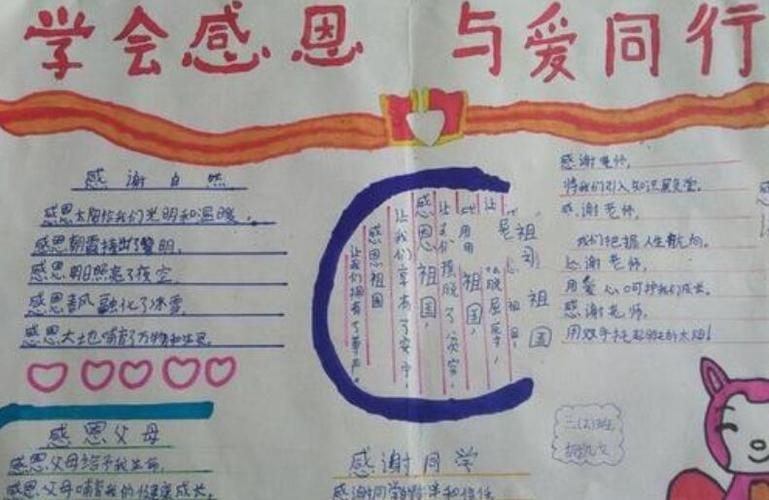 学会感恩 与爱同行
感谢自然
感恩太阳给我们光明和温暖,
感恩朝霞捧出了黎明,
感恩明月照亮了夜空,
感恩春风融化了冰雪,
感恩大地哺育了万物和生灵。
感恩父母
感恩父母给予我生命,
感恩父母哺育我们健康成长,
感恩祖国,
让我们摆脱了贫穷,
感恩祖国,
让我们享有了安宁,
感恩祖国
让我们拥有了尊严。
感谢老师,
将我们引入知识殿堂。
感谢老师,
我们把握人生航向。
感谢老师,
用爱心呵护我们成长。
感谢老师,
用双手托起明天的太阳!
三(2)班
感谢同学
感谢同学的 和信任